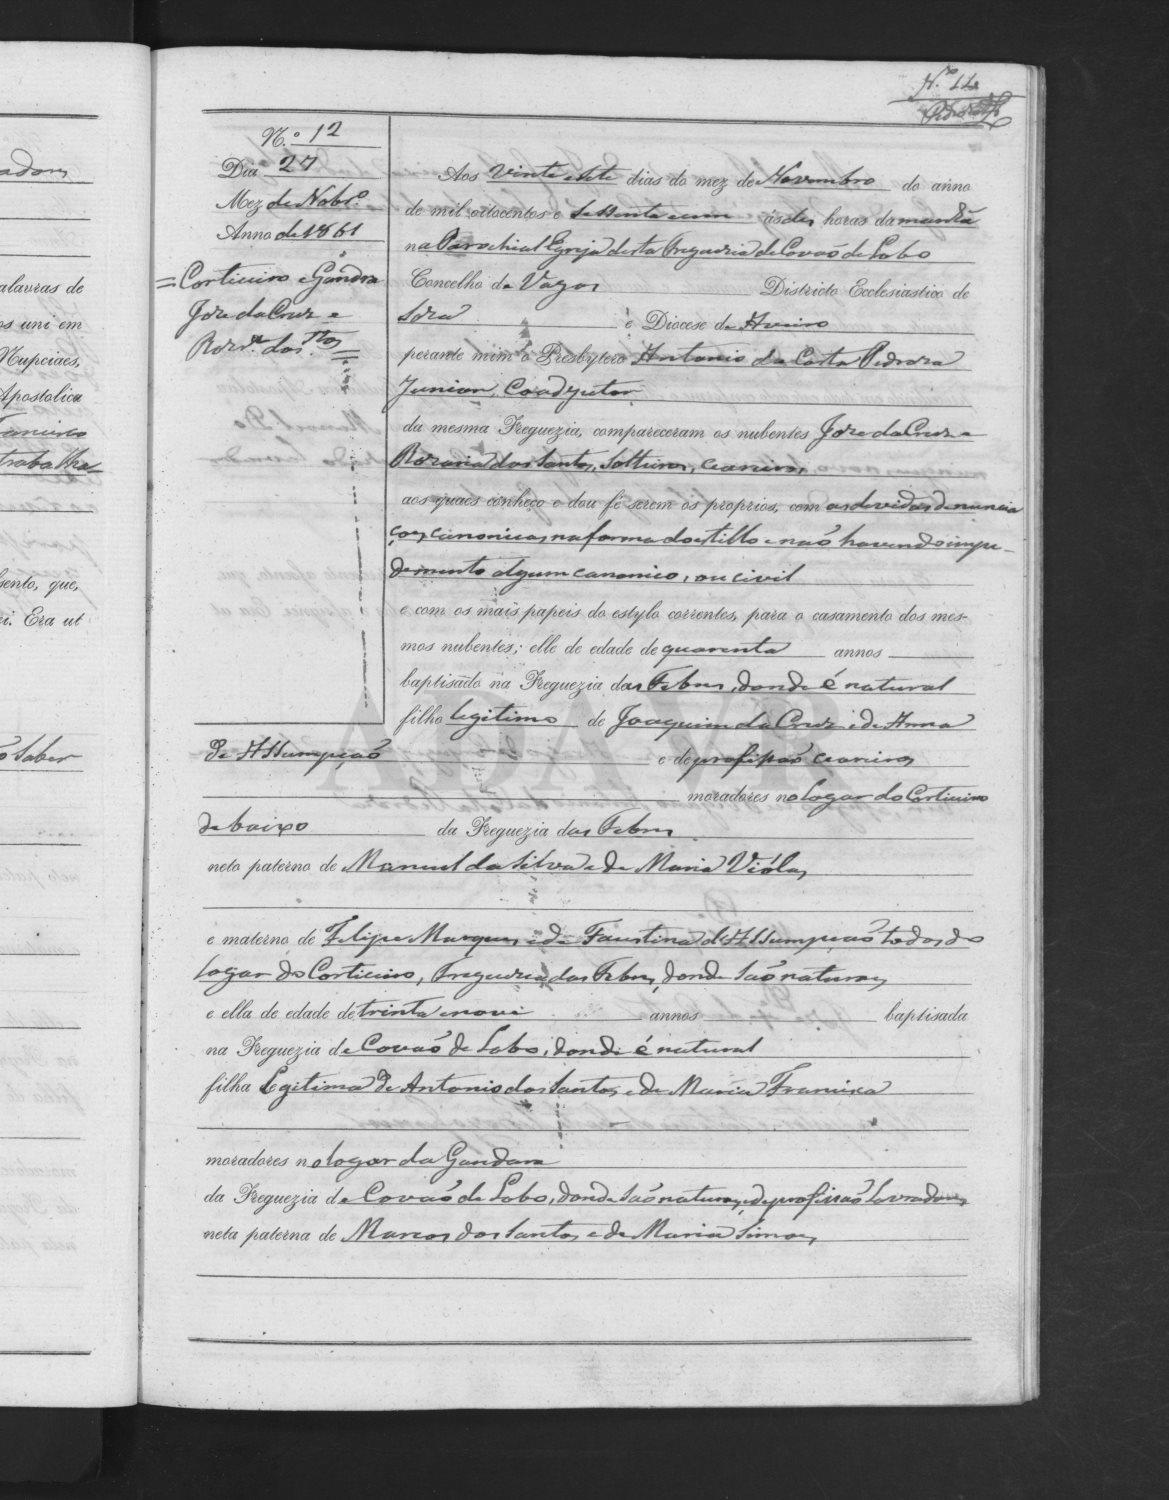 N.º 12
N.º 12
Dia 27
Mez de Nobr.º
Anno de 1861
= Corticeiro e Gandra
Joze da Cruz e
Rozr.ª dos S.tos =
Aos Vinte e sete dias do mez de Novembro do anno
de mil oitocentos e sessenta e um ás dez horas da manhã
na Parochial Egreja desta Freguezia de Covaõ de Lobo
Concelho de Vagos Districto Ecclesiastico de
Soza e Diocese de Aveiro
perante mim o Presbytero Antonio da Costa Pedroza
Junior, Coadjutor
da mesma Freguezia, compareceram os nubentes Joze da Cruz e
Rozaria dos Santos, Solteiros, ceareiros,
aos quaes conheço e dou fé serem os proprios, com as devidas denuncia
ções canonicas na forma do estillo e naõ havendo impe-
dimento algum canonico, ou civil
e com os mais papeis do estylo correntes, para o casamento dos mes-
mos nubentes; elle de edade de quarenta annos
baptisado na Freguezia das Febres, donde é natural
filho legitimo de Joaquim da Cruz e de Anna
de Assumpçaõ e de profissaõ ceareiros
moradores no logar do Corticeiro
de baixo da Freguezia das Febres
neto paterno de Manuel da Silva e de Maria Viólas
e materno de Felipe Marques e de Faustina d'Assumpçaõ todos do
logar do Corticeiro, Freguezia das Febres, donde saõ naturaes
e ella de edade de trinta e nove annos baptisada
na Freguezia de Covaõ de Lobo, donde é natural
filha Legitima de Antonio dos Santos e de Maria Francisca
moradores no logar da Gandara
da Freguezia de Covaõ de Lobo, donde saõ naturaes, e de profissaõ Lavradores
neta paterna de Marcos dos Santos e de Maria Simoes
adores
alavras de
os uni em
Nupciaes,
Apostolica
Francisco
trabalha
sento, que,
ei. Era ut
ó saber